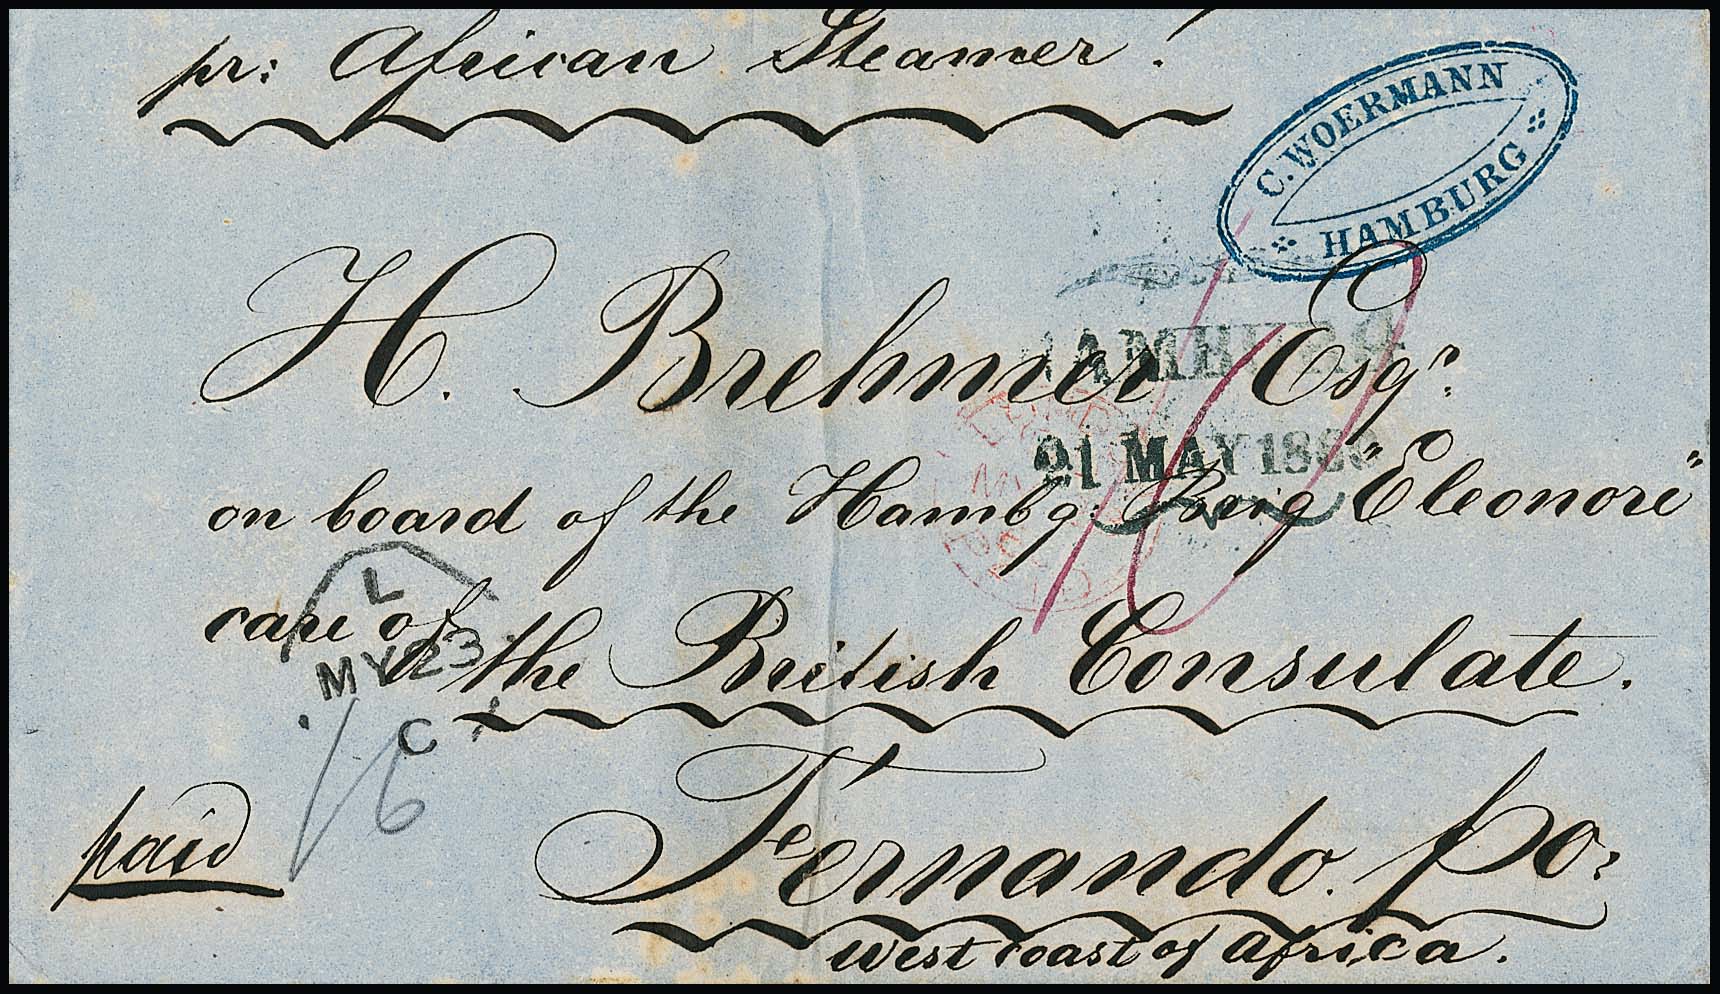 pr: African Steamer!
C. WOERMANN
HAMBURG
H. Brehmer Esqr.
HAMBURG
21 MAY
on board of the Hambg: Brig "Eleonore"
care of the British Consulate.
L
MY 23
C
1/6
paid
Fernando po,
West coast of Africa.